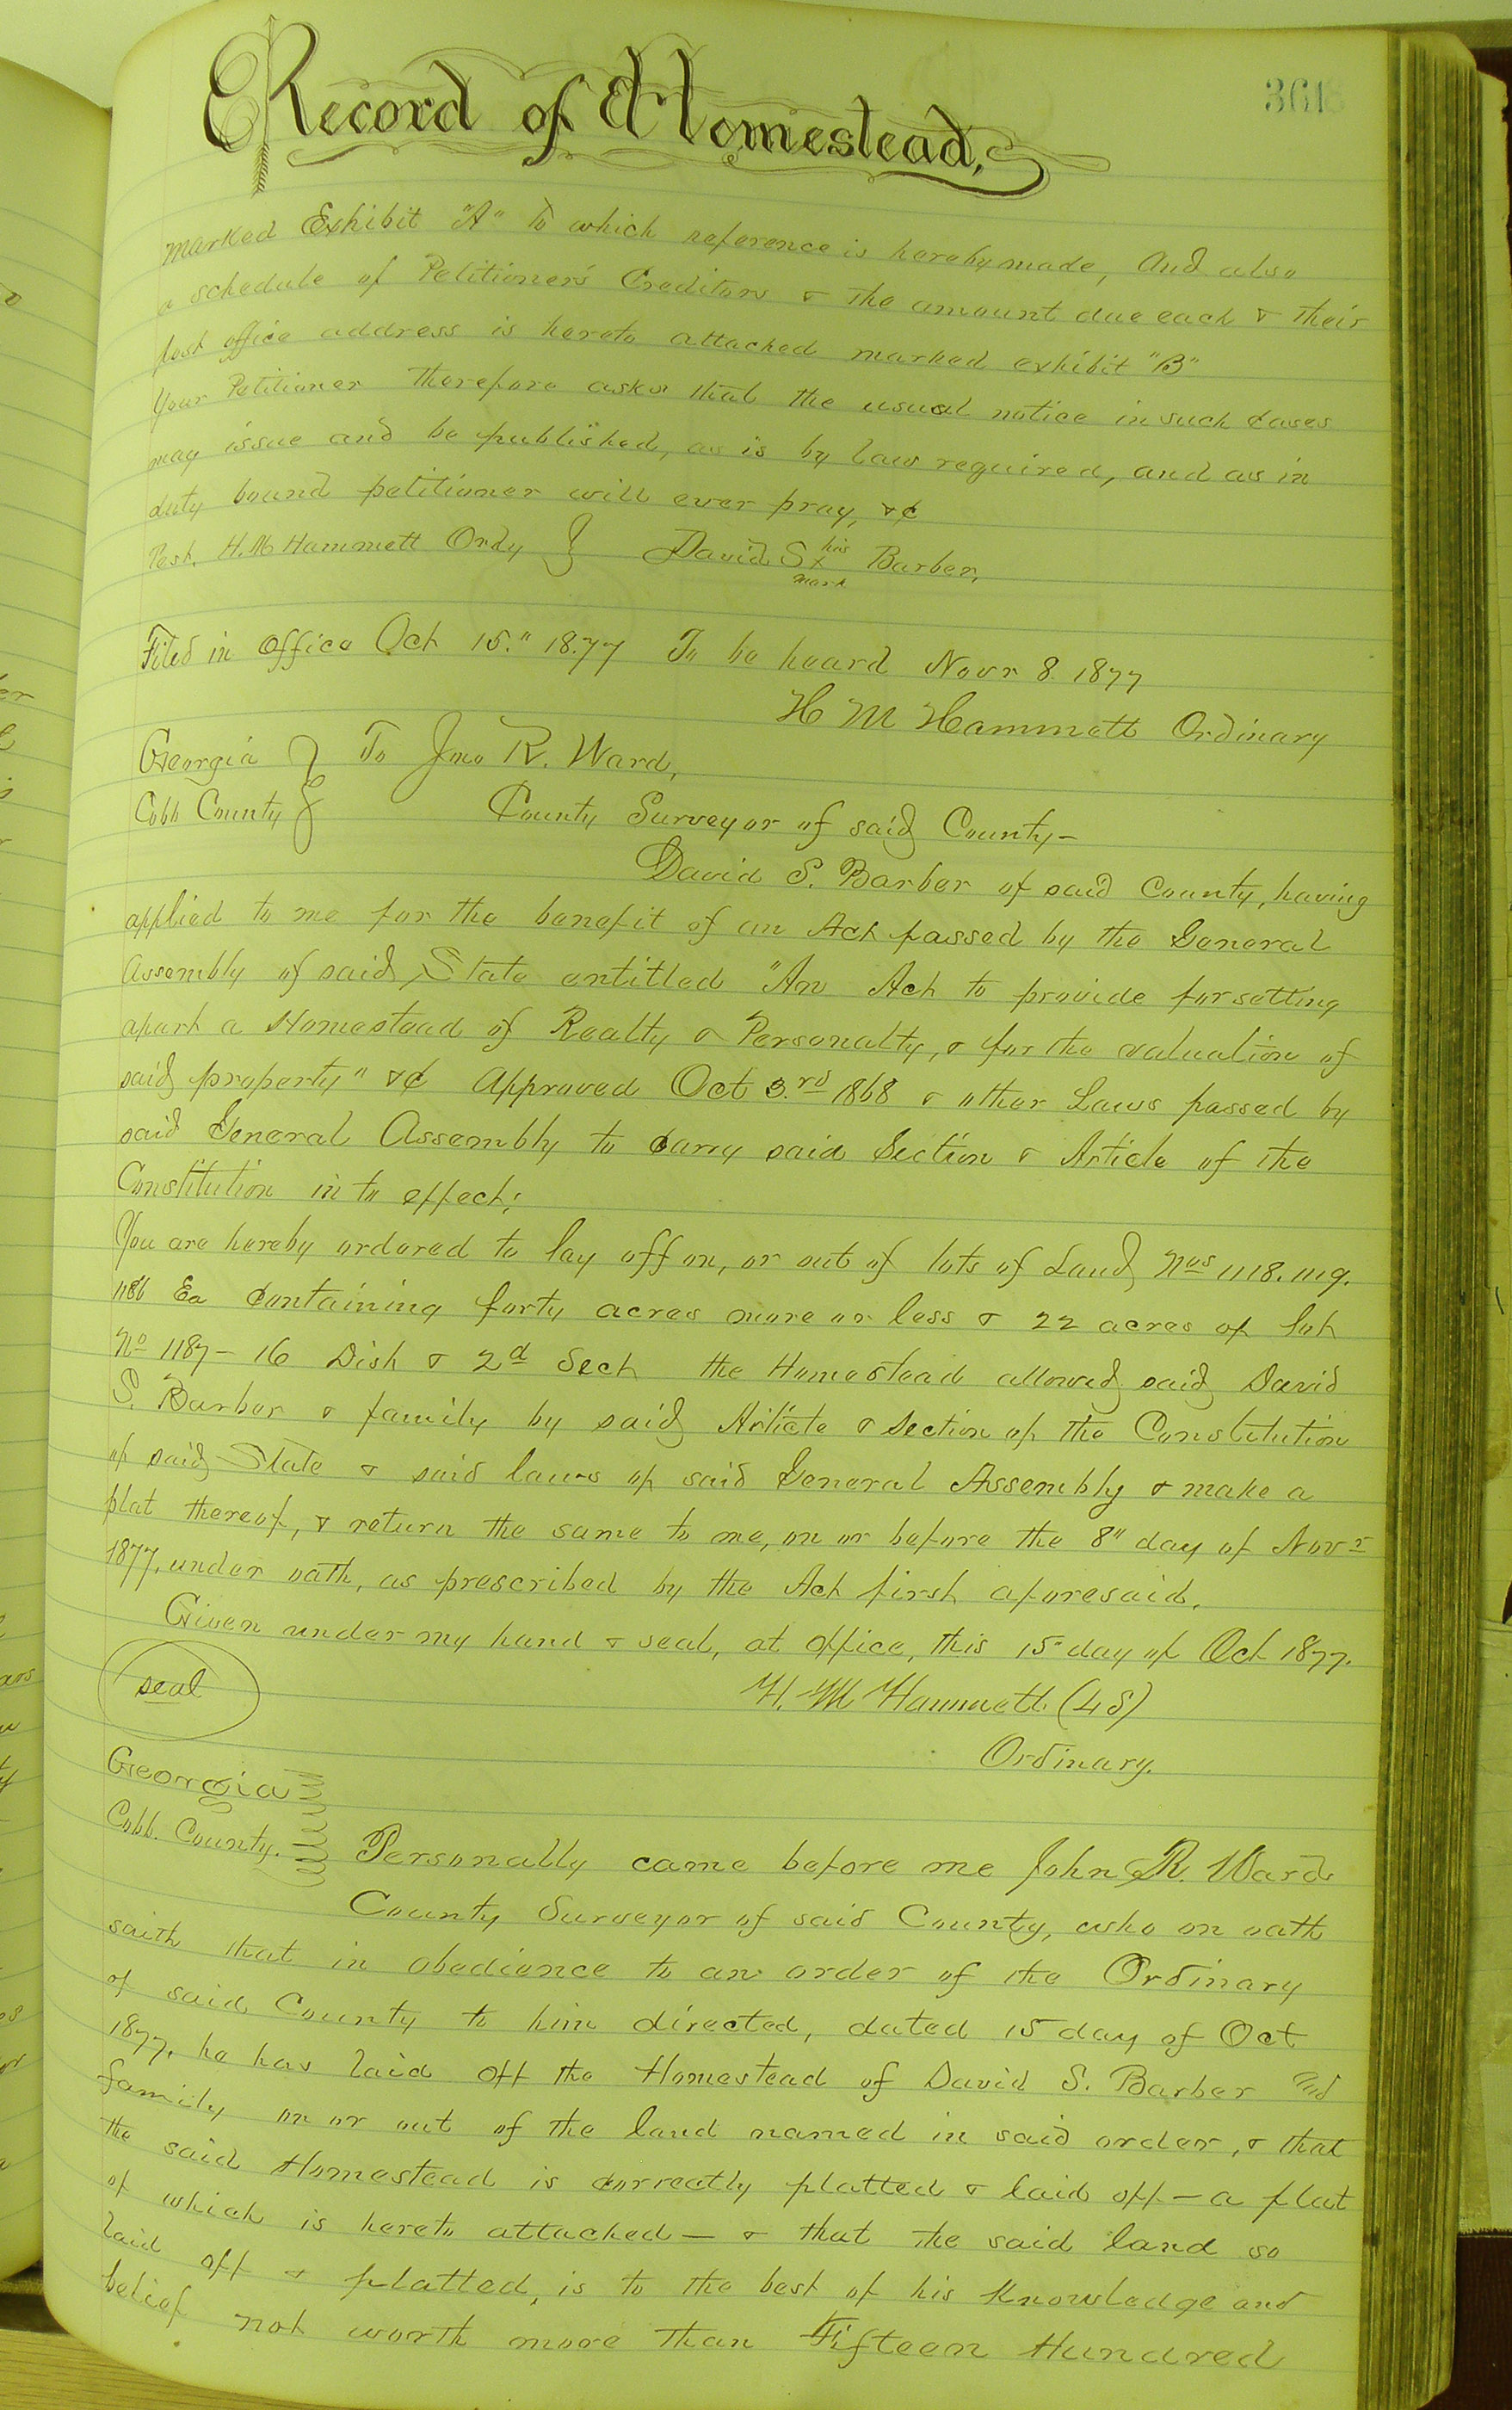 Record of Homestead.
361
marked Exhibit "A" to which reference is hereby made, And also
a schedule of Petitioner's Creditors & the amount due each & their
post office address is hereto attached marked exhibit "B"
Your Petitioner therefore asks that the usual notice in such cases
may issue and be published, as is by law required, and as in
duty bound petitioner will ever pray, &c
Test. H. M Hammett Ordy } David S his x mark Barber,
Filed in office Oct 15." 1877 To be heard Novr 8. 1877
H M Hammett Ordinary
Georgia } To Jno R. Ward,
Cobb County } County Surveyor of said County—
David S. Barber of said County, having
applied to me for the benefit of an Act passed by the General
Assembly of said State entitled "An Act to provide for setting
apart a Homestead of Realty & Personalty, & for the valuation of
said property" &c Approved Oct 3.rd 1868 & other Laws passed by
said General Assembly to carry said Section & Article of the
Constitution in to effect;
You are hereby ordered to lay off on, or out of lots of Land Nos 1118. 1119.
1186 Ea Containing forty acres more or less & 22 acres of lot
No 1187— 16 Dist & 2d Sect the Homestead allowed said David
S. Barber & family by said Article & Section of the Constitution
of said State & said laws of said General Assembly & make a
plat thereof, & return the same to me, on or before the 8" day of Novr
1877, under oath, as prescribed by the Act first aforesaid.
Given under my hand & seal, at office, this 15" day of Oct 1877.
seal
H. M Hammett (LS)
Ordinary.
Georgia
Cobb. County. Personally came before me John R. Ward
County Surveyor of said County, who on oath
saith that in obedience to an order of the Ordinary
of said County to him directed, dated 15 day of Oct
1877, he has laid off the Homestead of David S. Barber and
family on or out of the land named in said order, & that
the said Homestead is correctly platted & laid off — a plat
of which is hereto attached — & that the said land so
laid off & platted, is to the best of his Knowledge and
belief not worth more than Fifteen Hundred